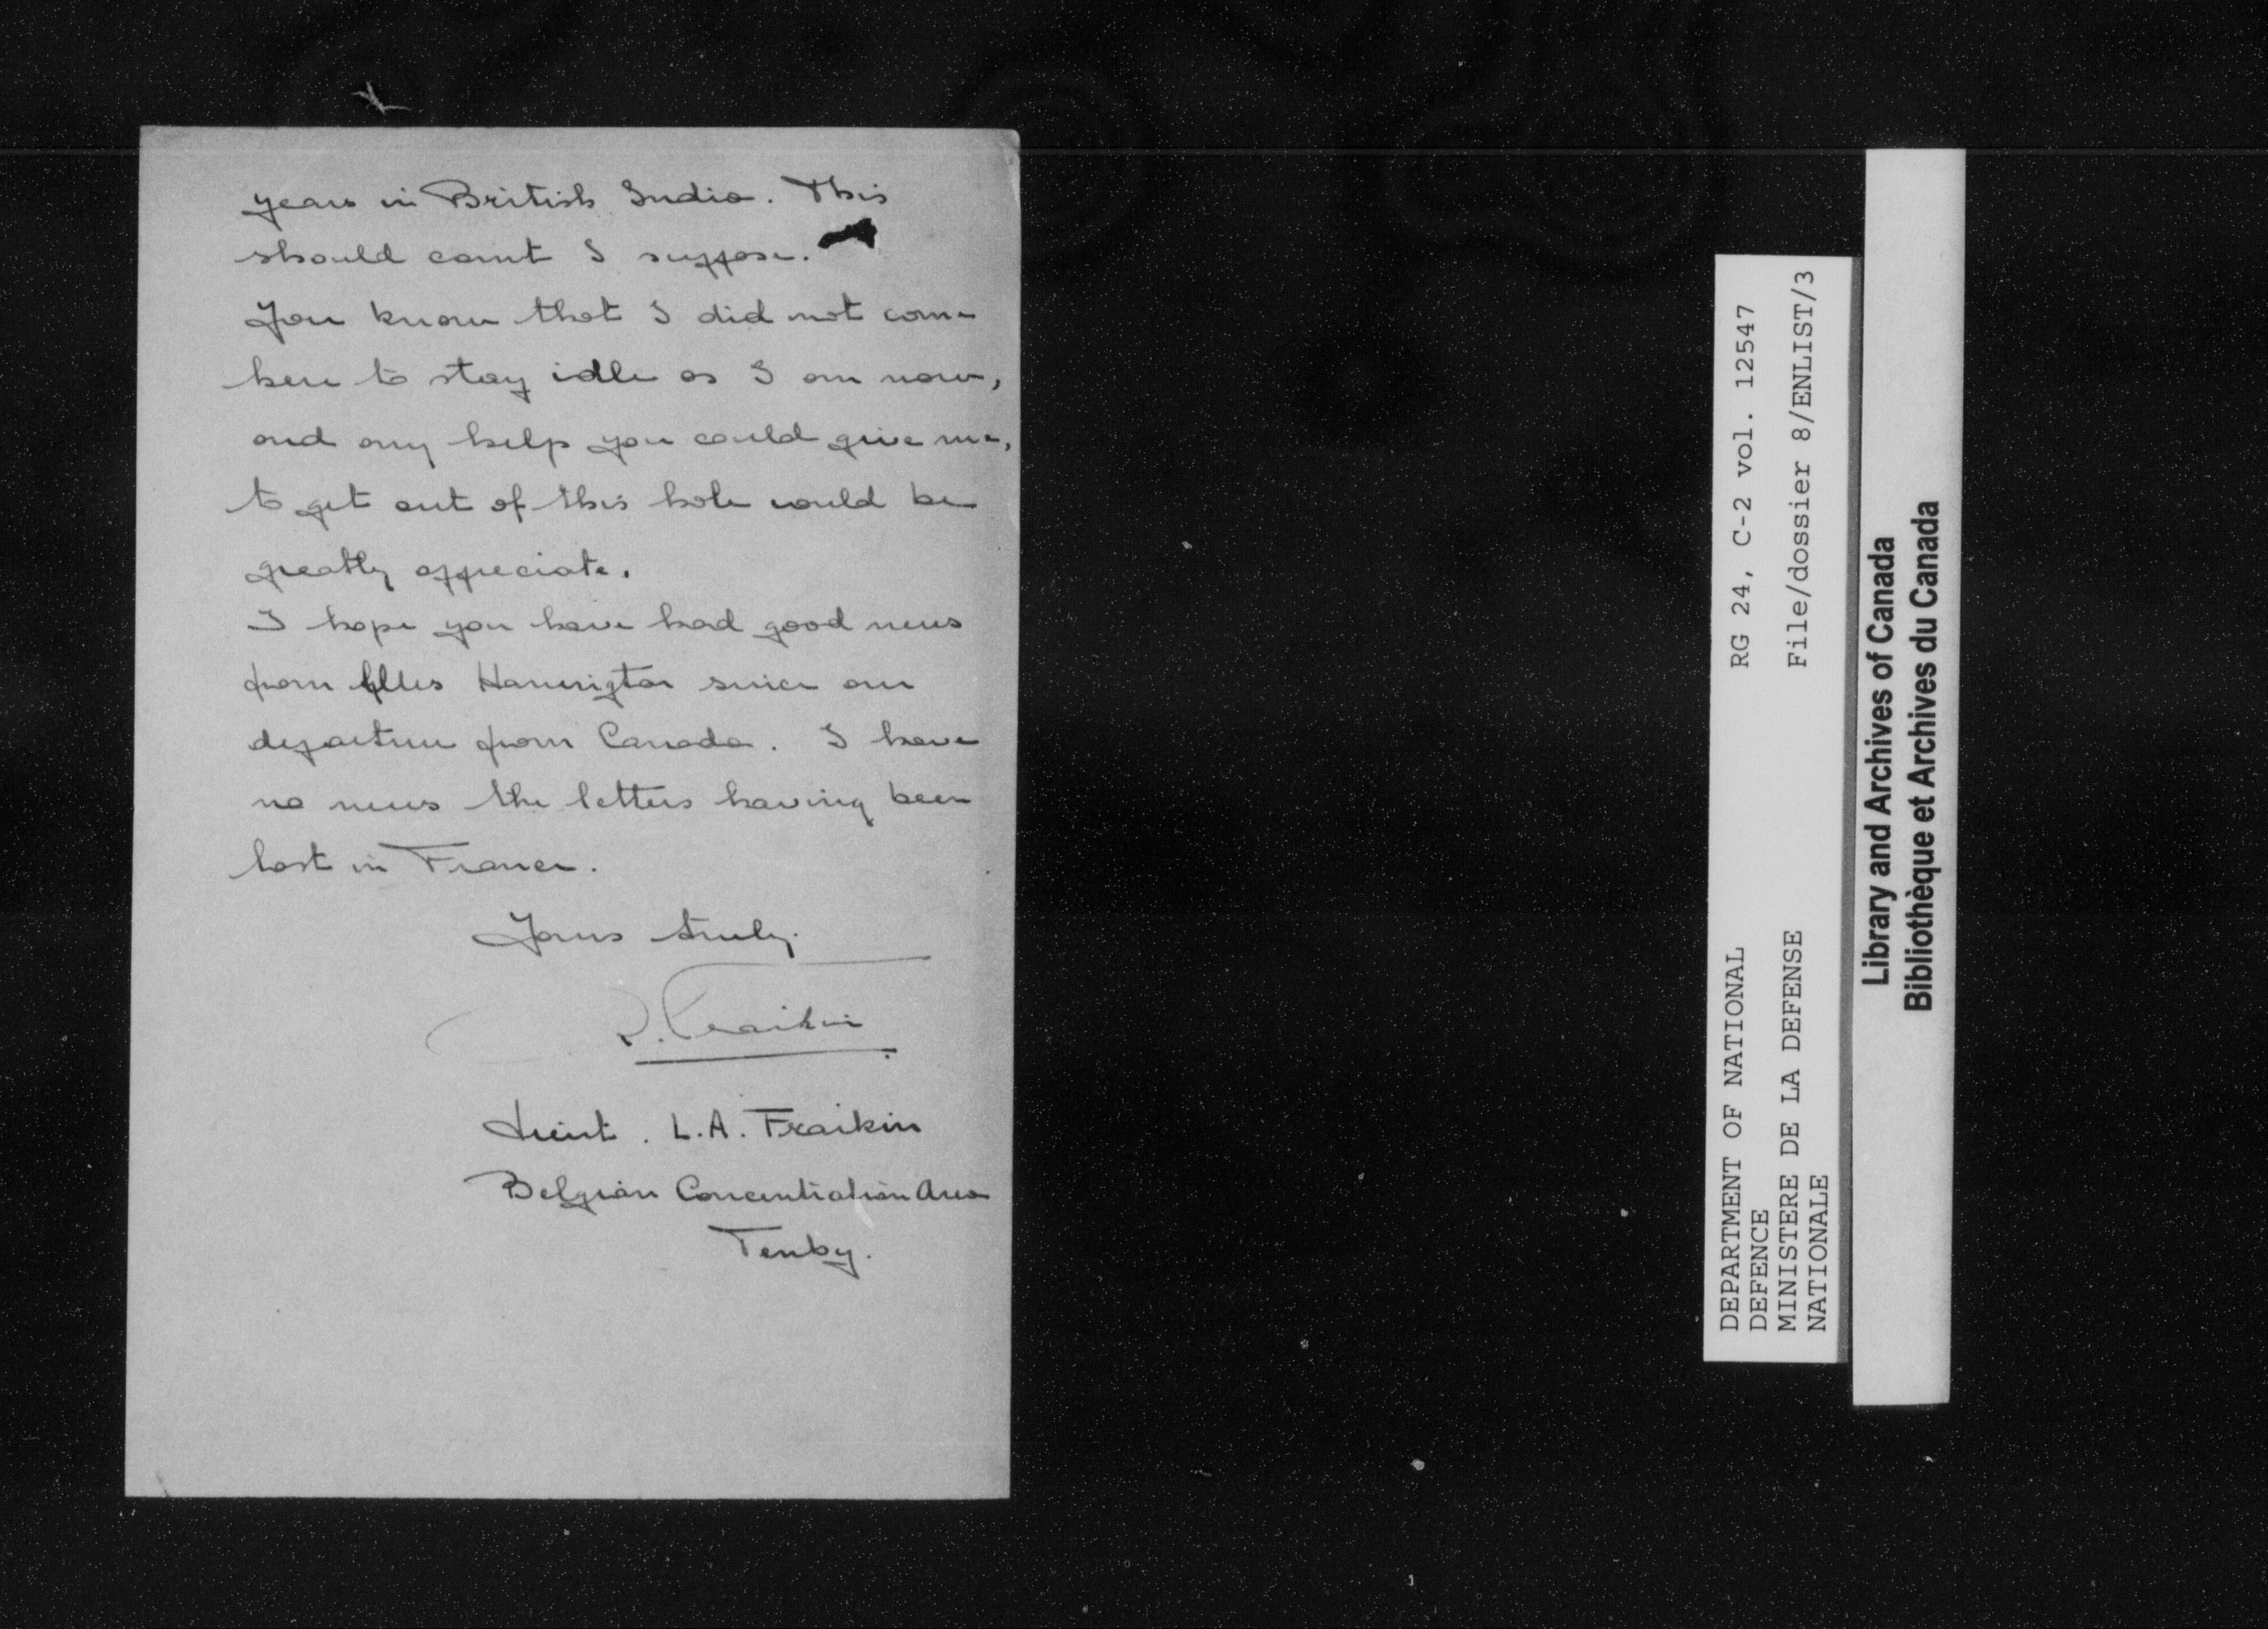 years in British India. This
should count I suppose.
You know that I did not come
here to stay idle as I am now,
and any help you could give me,
to get out of this hole would be
greatly appreciate.
I hope you have had good news
from since our
departure from Canada. I have
no news the letters having been
lost in France.
Yours truly.
L. Fraikin
Lieut. L.A. Fraikin
Belgian Concentration Area
Tenby.
RG 24, C-2 vol. 12547
File/dossier 8/ENLIST/3
DEPARTMENT OF NATIONAL
DEFENCE
MINISTERE DE LA DEFENSE
NATIONALE
Library and Archives of Canada
Bibliothèque et Archives du Canada